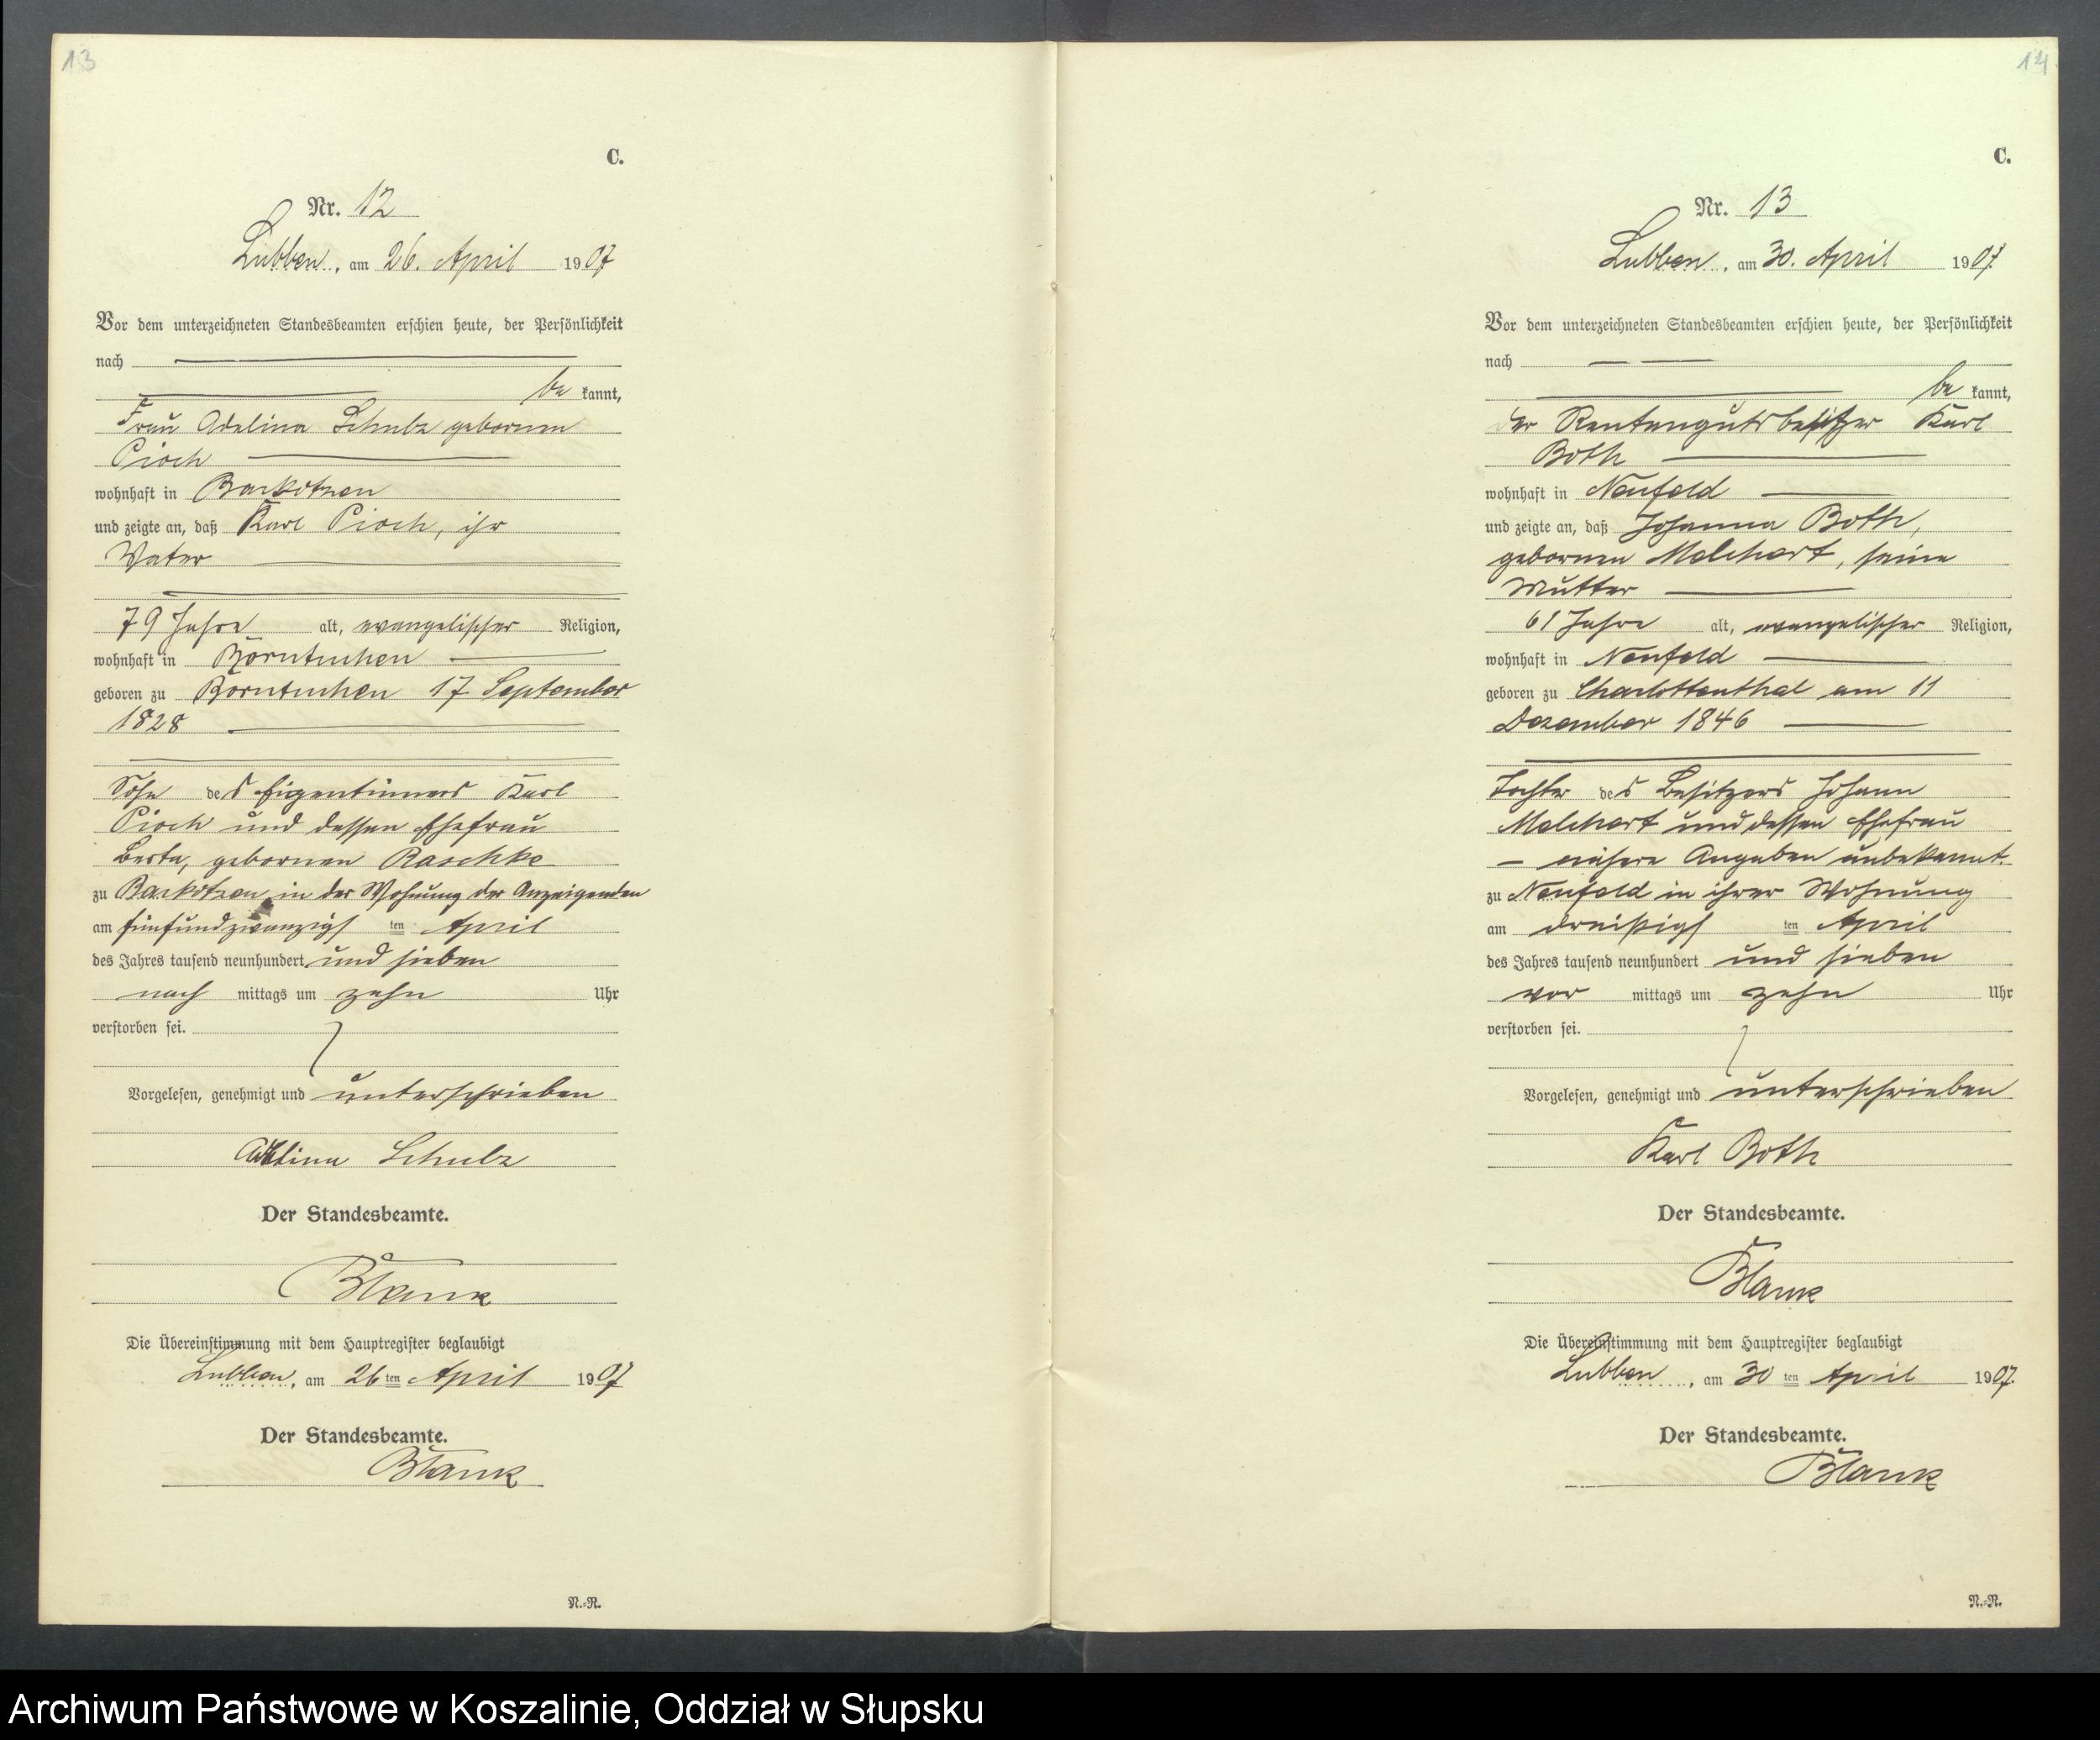 13
C.
Nr. 12
Lubben, am 26. April 1907
Vor dem unterzeichneten Standesbeamten erschien heute, der Persönlichkeit
nach
be kannt,
Frau Adelina Schulz gebornen
Pioch
wohnhaft in Barkotzen
und zeigte an, daß Karl Pioch, ihr
Vater
79 Jahre alt, evangelischer Religion,
wohnhaft in Börntuchen
geboren zu Börntuchen 17 September
1828
Sohn des Eigentümers Karl
Pioch und dessen Ehefrau
Berta, gebornen Raschke
zu Barkotzen, in der Wohnung der Anzeigenden
am fünfundzwanzigs ten April
des Jahres tausend neunhundert und sieben
nach mittags um zehn Uhr
verstorben sei.
Vorgelesen, genehmigt und unterschrieben
Adelina Schulz
Der Standesbeamte.
Blank
Die Übereinstimmung mit dem Hauptregister beglaubigt
Lubben, am 26 ten April 1907
Der Standesbeamte.
Blank
N.=R.
14
C.
Nr. 13
Lubben, am 30. April 1907.
Vor dem unterzeichneten Standesbeamten erschien heute, der Persönlichkeit
nach
be kannt,
der Rentengutsbesitzer Karl
Both
wohnhaft in Neufeld
und zeigte an, daß Johanna Both,
gebornen Melchert, seine
Mutter
61 Jahre alt, evangelischer Religion,
wohnhaft in Neufeld
geboren zu Charlottenthal am 11
Dezember 1846
Tochter des Besitzers Johann
Melchert und dessen Ehefrau
– nähere Angaben unbekannt.
zu Neufeld in ihrer Wohnung
am dreißigs ten April
des Jahres tausend neunhundert und sieben
vor mittags um zehn Uhr
verstorben sei.
Vorgelesen, genehmigt und unterschrieben
Karl Both
Der Standesbeamte.
Blank
Die Übereinstimmung mit dem Hauptregister beglaubigt
Lubben, am 30 ten April 1907.
Der Standesbeamte.
Blank
N.=R.
Archiwum Państwowe w Koszalinie, Oddział w Słupsku